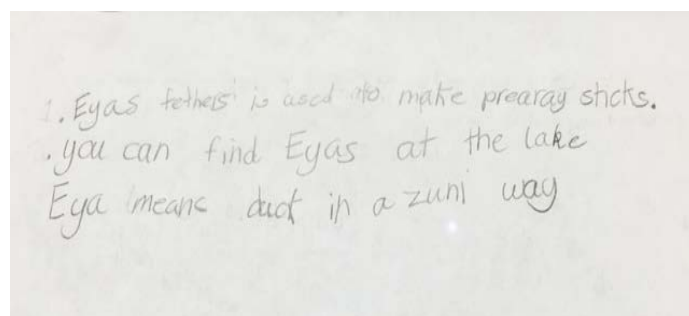 1. Eyas fethers is used to make prearay sticks.
. you can find Eyas at the lake
Eya means duck in a zuni way